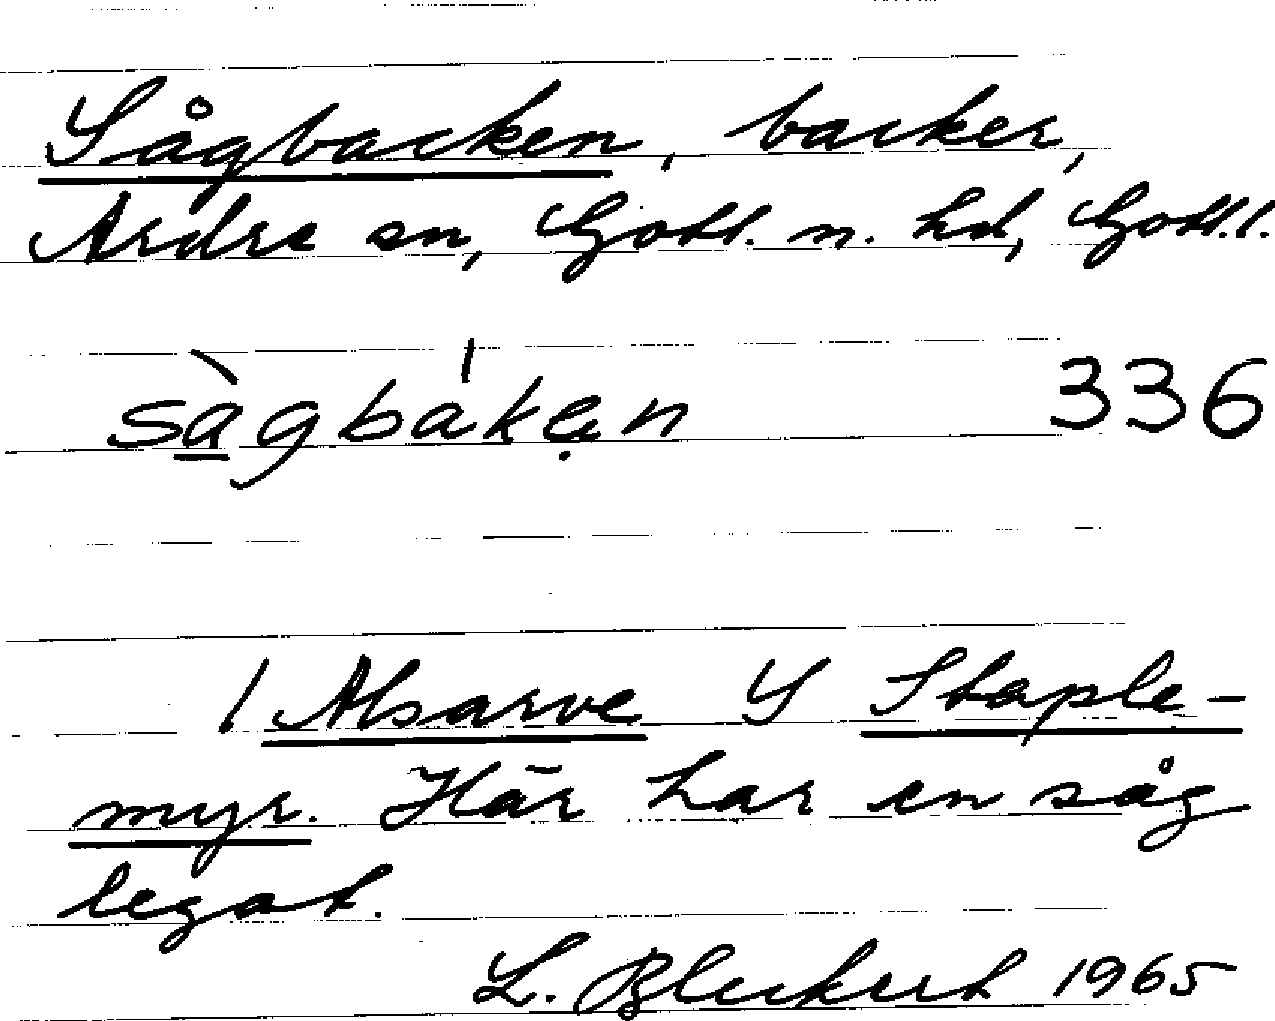 Sågbacken, backer,
Ardre sn, Gotl. n. hd, Gotl.l.
sàgbákẹn 336
I Alsarve Y Staple-
myr. Här har en såg
legat.
L. Bleckert 1965